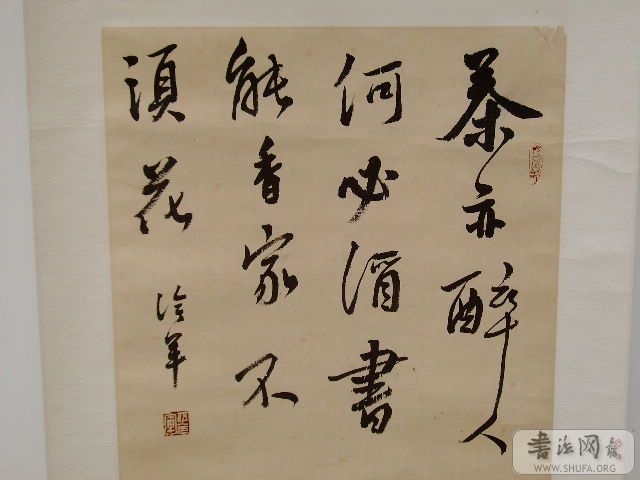 茶亦醉人
何必酒書
能香家不
湏花
書法网
WWW.SHUFA.ORG